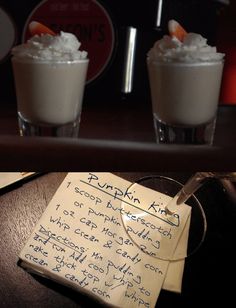 SON'S
Pumpkin King
1 scoop butterscotch
or pumpkin pudding
oz cap Morgan
whip cream & candy corn
Directions: Mix pudding
and rum. Add cool whip to
make thick, top w/ whipe
cream & candy corn